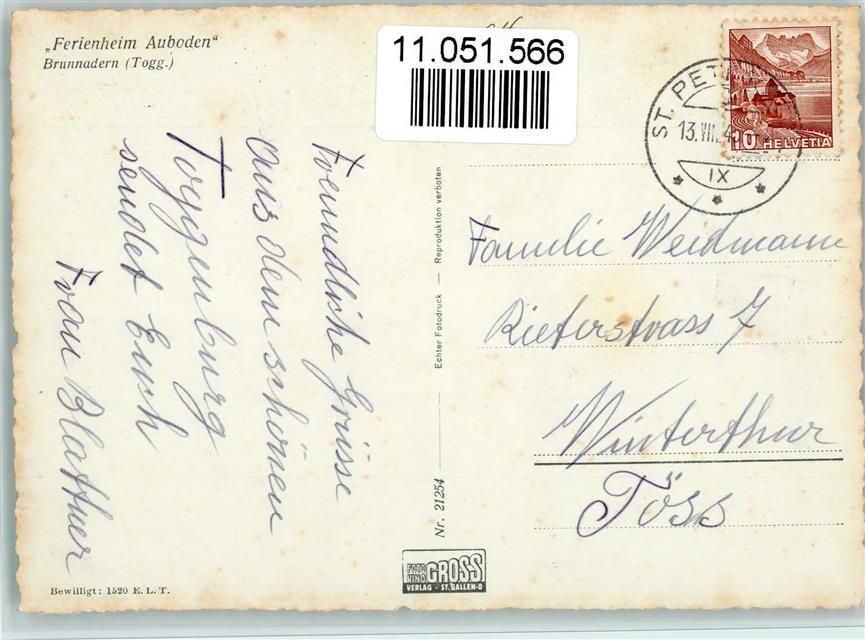 „Ferienheim Auboden“
Brunnadern (Togg.)
11.051.566
ST. PET
13. VIII. 4
IX
10 HELVETIA
Freundliche Grüsse
aus dem schönen
Toggenburg
sendet Euch
Frau Blattner
Echter Fotodruck — Reproduktion verboten
Nr. 21254
Familie Weidmann
Rieterstrass 7
Winterthur
Töss
FOTO KINO GROSS
VERLAG - ST. GALLEN-O
Bewilligt: 1520 E. L. T.